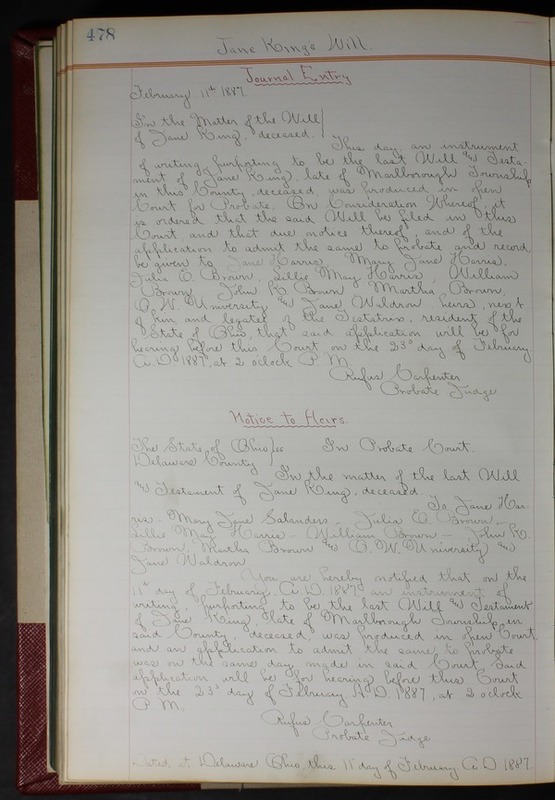 478
Jane King's Will.
Journal Entry
February 11th 1887.
In the Matter of the Will
of Jane King, deceased.
This day an instrument
of writing, purporting to be the last Will and Testa-
ment of Jane King, late of Marlborough Township
in this County, deceased, was produced in open
Court for Probate. On Consideration Whereof, it
is ordered that the said Will be filed in this
Court and that due notice thereof, and of the
application to admit the same to probate and record
be given to Jane Harris, Mary Jane Harris,
Julia E. Brown, Lillie May Harris, William
Brown, John K. Brown Martha Brown,
O. W. University and Jane Waldron heirs, next
of kin and legatees of the Testatrix, resident of the
State of Ohio, that said application will be for
hearing before this Court on the 23d day of February
A.D. 1887, at 2 oclock P.M.
Rufus Carpenter
Probate Judge
Notice to Heirs.
The State of Ohio } ss In Probate Court.
Delaware County
In the matter of the last Will
and Testament of Jane King, deceased.
To Jane Har-
ris - Mary Jane - Julia E. Brown, -
Lillie May Harris - William Brown - John K.
Brown, Martha Brown and O. W. University and
Jane Waldron
You are hereby notified that on the
11th day of February, A.D. 1887, an instrument of
writing, purporting to be the last Will and Testament
of Jane King, late of Marlborough Township, in
said County, deceased, was produced in open Court
and an application to admit the same to probate
was on the same day made in said Court. Said
application will be for hearing before this Court
on the 23d day of February A.D. 1887, at 2 oclock
P.M.
Rufus Carpenter
Probate Judge
Dated at Delaware Ohio, this 11th day of February A.D. 1887.